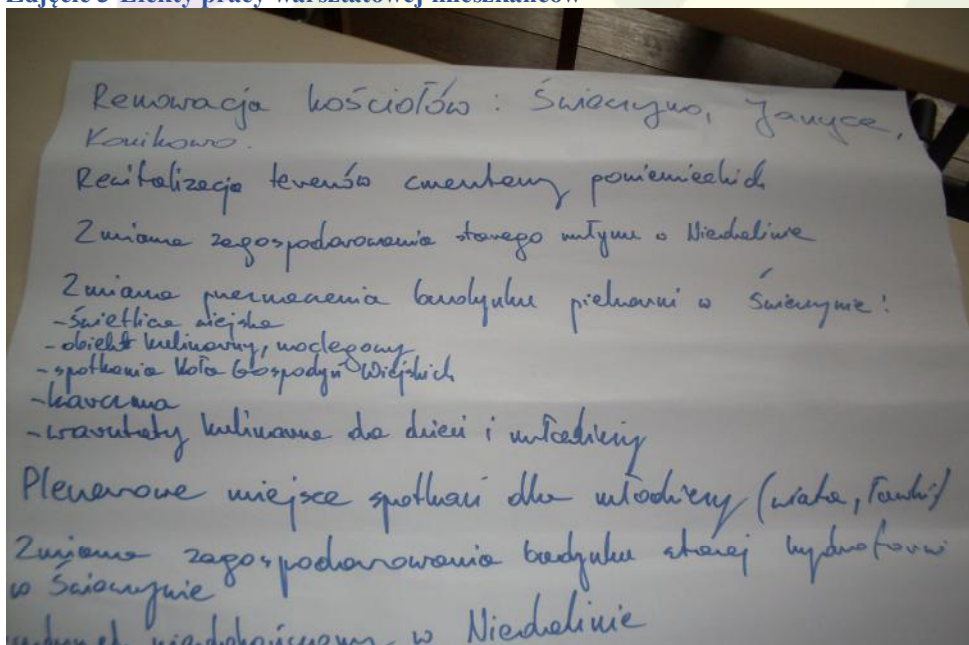 Zdjęcie 3 Efekty pracy warsztatowej mieszkańców
Renowacja kościołów : Świeszyno, Jarzyce,
Konikowo.
Rewitalizacja terenów cmentarzy poniemieckich
Zmiana zagospodarowania starego młyna w Niedalinie
Zmiana przeznaczenia budynku piekarni w Świeszynie:
- świetlica wiejska
- obiekt kulinarny, noclegowy
- spotkania Koła Gospodyń Wiejskich
- karczma
- warsztaty kulinarne da dzieci i młodzieży
Plenerowe miejsce spotkań dla młodzieży (wiata, ławki)
Zmiana zagospodarowania budynku starej hydroforni
w Świeszynie
budynek niedokończony w Niedalinie